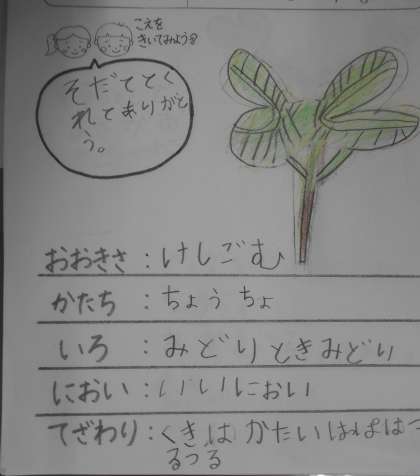 こえを
きいてみよう
そだてとく
れとありがと
う。
おおきさ：けしごむ
かたち：ちょうちょ
いろ：みどりときみどり
におい：いいにおい
てざわり：くきは かたい はっぱはつ
るつる